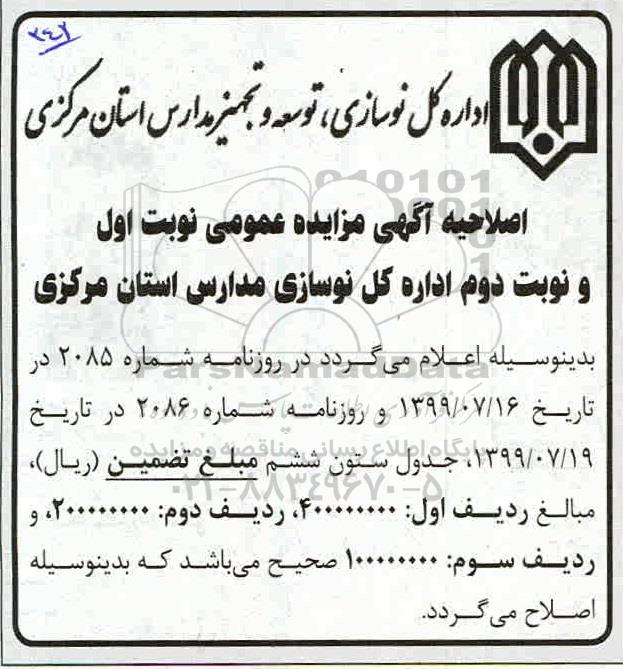 اداره کل نوسازی، توسعه و تجهیز مدارس استان مرکزی
اصلاحیه آگهی مزایده عمومی نوبت اول
و نوبت دوم اداره کل نوسازی مدارس استان مرکزی
بدینوسیله اعلام می‌گردد در روزنامه شماره ۲۰۸۵ در
تاریخ ۱۳۹۹/۰۷/۱۶ و روزنامه شماره ۲۰۸۶ در تاریخ
۱۳۹۹/۰۷/۱۹، جدول ستون ششم مبلغ تضمین (ریال)،
مبالغ ردیف اول: ۴۰۰۰۰۰۰۰۰، ردیف دوم: ۲۰۰۰۰۰۰۰۰، و
ردیف سوم: ۱۰۰۰۰۰۰۰۰ صحیح می‌باشد که بدینوسیله
اصلاح می‌گردد.
ParsNamadData
پایگاه اطلاع رسانی مناقصه و مزایده
۰۲۱-۸۸۳۴۹۶۷۰-۵